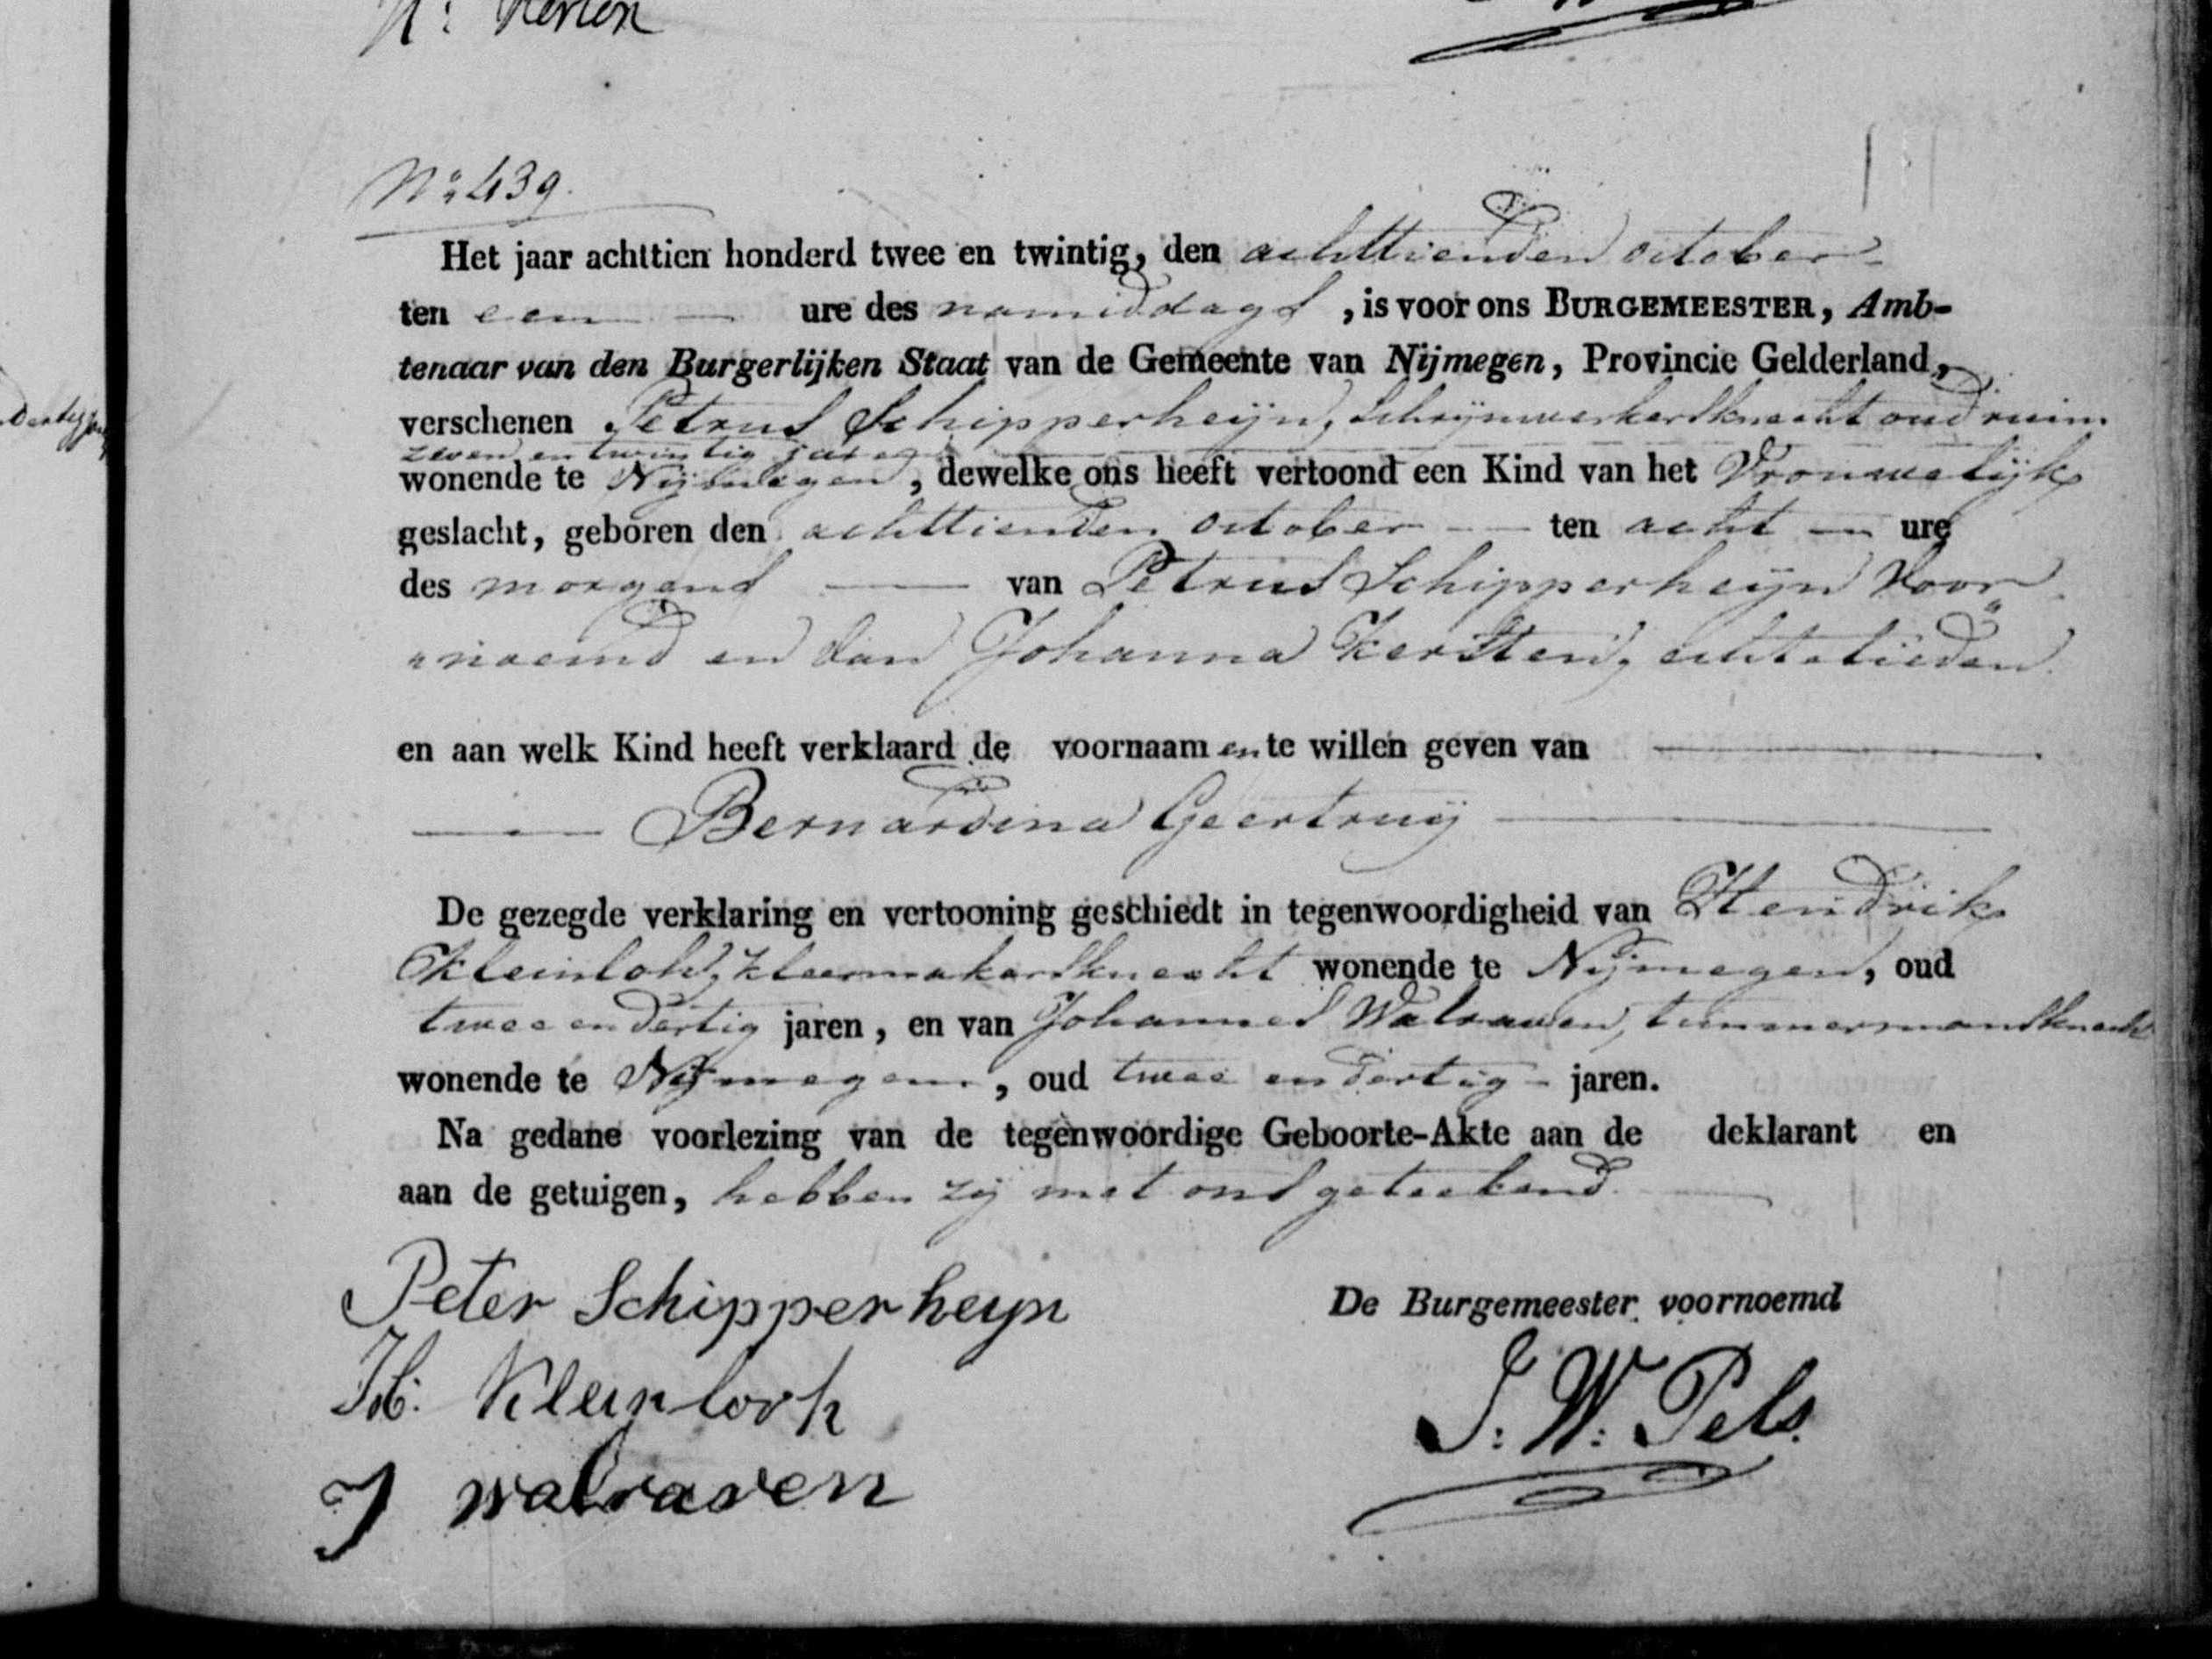 N: Kersten
No 439.
Het jaar achttien honderd twee en twintig, den achttienden october
ten een — ure des namiddags, is voor ons BURGEMEESTER, Amb-
tenaar van den Burgerlijken Staat van de Gemeente van Nijmegen, Provincie Gelderland,
verschenen Petrus Schipperheijn, Schrijnwerkersknecht oud ruim
zeven en twintig jaren
wonende te Nijmegen, dewelke ons heeft vertoond een Kind van het Vrouwelijk
geslacht, geboren den achttienden october — ten acht — ure
des morgens — van Petrus Schipperheijn voor
"noemd en van Johanna Kersten, echtelieden
en aan welk Kind heeft verklaard de voornaamen te willen geven van —
— Bernardina Geertruij —
De gezegde verklaring en vertooning geschiedt in tegenwoordigheid van Hendrik
Kleinloh, kleermakersknecht wonende te Nijmegen, oud
twee en dertig jaren, en van Johannes Walraven, timmermansknecht
wonende te Nijmegen, oud twee en dertig - jaren.
Na gedane voorlezing van de tegenwoordige Geboorte-Akte aan de deklarant en
aan de getuigen, hebben zij met ons geteekend. —
Peter Schipperheyn
De Burgemeester voornoemd
H: Kleinlooh
J: W: Pels.
J walraven